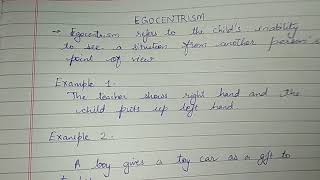 EGOCENTRISM
→ Egocentrism refers to the child's inability
to see a situation from another person's
point of view
Example 1.
The teacher shows right hand and the
child picks up left hand
Example 2.
A boy gives a toy car as a gift to